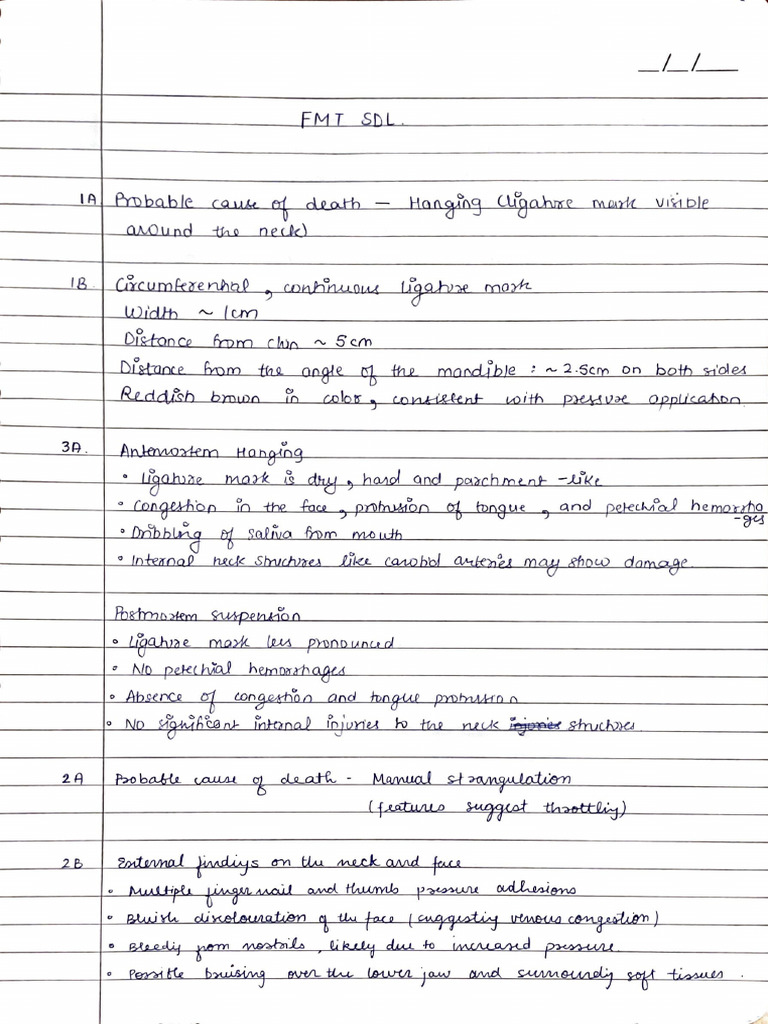 __/__/____
FMT SDL.
1A Probable cause of death — Hanging (ligature mark visible
around the neck)
1B. Circumferential, continuous ligature mark
Width ~ 1cm
Distance from chin ~ 5cm
Distance from the angle of the mandible : ~ 2.5cm on both sides
Reddish brown in color, consistent with pressure application
3A. Antemortem Hanging
• Ligature mark is dry, hard and parchment -like
• Congestion in the face, protrusion of tongue, and petechial hemorrha
-ges
• Dribbling of saliva from mouth
• Internal neck structures like carotid arteries may show damage.
Postmortem suspension
• Ligature mark less pronounced
• No petechial hemorrhages
• Absence of congestion and tongue protrusion
• No significant internal injuries to the neck injories structures.
2A Probable cause of death - Manual strangulation
(features suggest throttling)
2B External findings on the neck and face
• Multiple finger nail and thumb pressure adhesions
• Bluish discolouration of the face (suggesting venous congestion)
• Bleeding from nostrils, likely due to increased pressure.
• Possible bruising over the lower jaw and surrounding soft tissues.